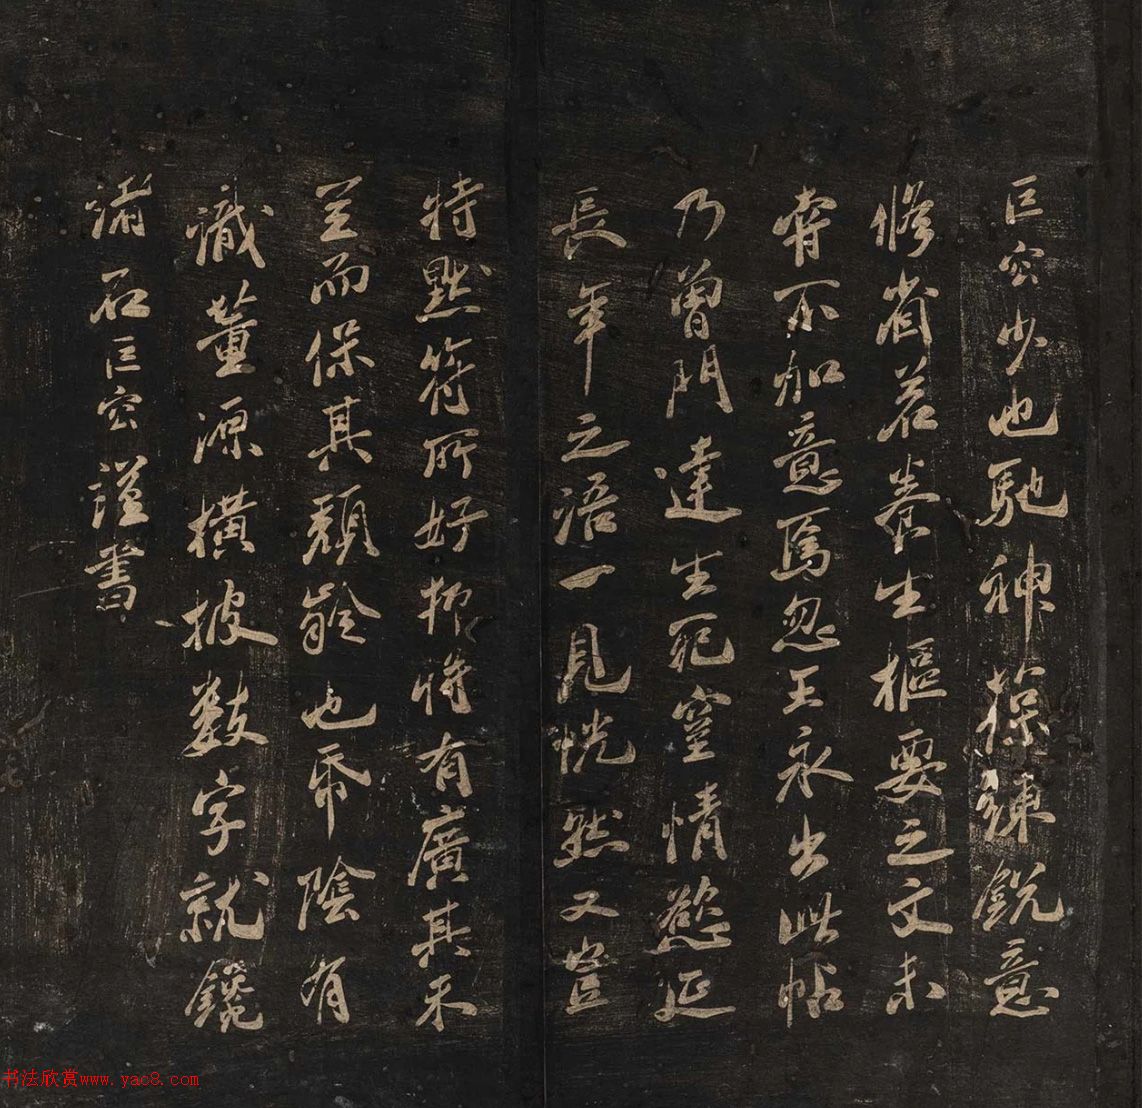 巨密少也馳神葆鍊銳意
修省若養生樞要之文未
嘗不加意焉忽王永出此帖
乃曾門達生死窒情慾延
長年之語一見恍然又豈
特默符所好抑將有廣其未
至而保其頽齡也帋陰有
識董源橫披數字就鑱
諸石巨密謹書
书法欣赏www.yac8.com